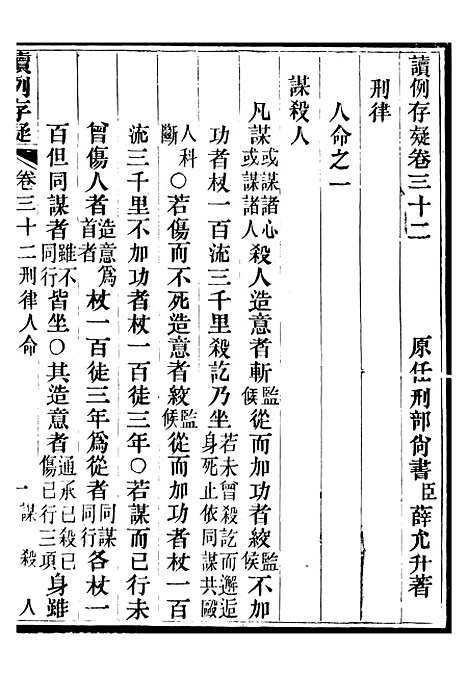 讀例存疑卷三十二
原任刑部尙書臣薛允升著
刑律
人命之一
謀殺人
凡謀或謀諸心或謀諸人殺人造意者斬監候從而加功者絞監候不加
功者杖一百流三千里殺訖乃坐若未曾殺訖而邂逅身死止依同謀共毆
人科斷○若傷而不死造意者絞監候從而加功者杖一百
流三千里不加功者杖一百徒三年○若謀而已行未
曾傷人者造意爲首者杖一百徒三年爲從者同謀同行各杖一
百但同謀者雖不同行皆坐○其造意者通承已殺已傷已行三項身雖
讀例存疑
卷三十二刑律人命
一
謀殺人